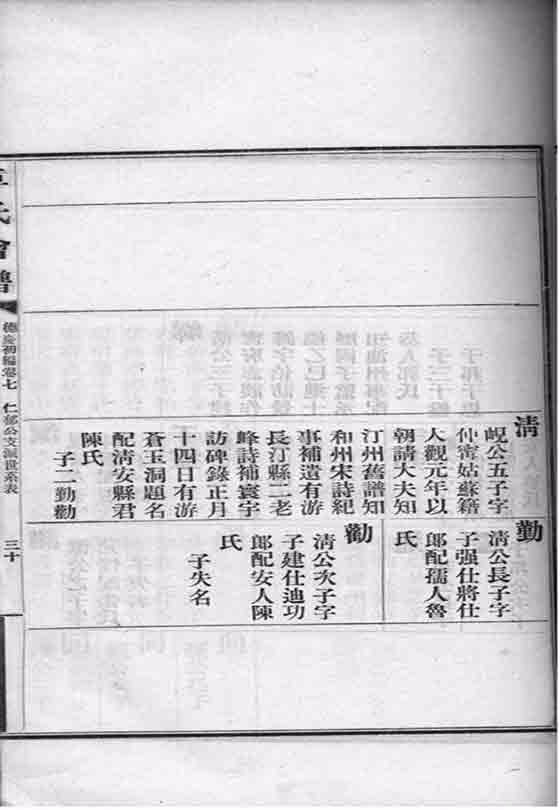 清
峴公五子字
仲甯姑蘇籍
大觀元年以
朝請大夫知
汀州舊譜知
和州宋詩紀
事補遺有游
長汀縣二老
峰詩補寰宇
訪碑錄正月
十四日有游
蒼玉洞題名
配清安縣君
陳氏
子二勤勸
勤
清公長子字
子强仕將仕
郎配孺人魯
氏
勸
清公次子字
子建仕迪功
郎配安人陳
氏
子失名
氏會譜
德慶初編卷七
仁郁公支派世系表
三十